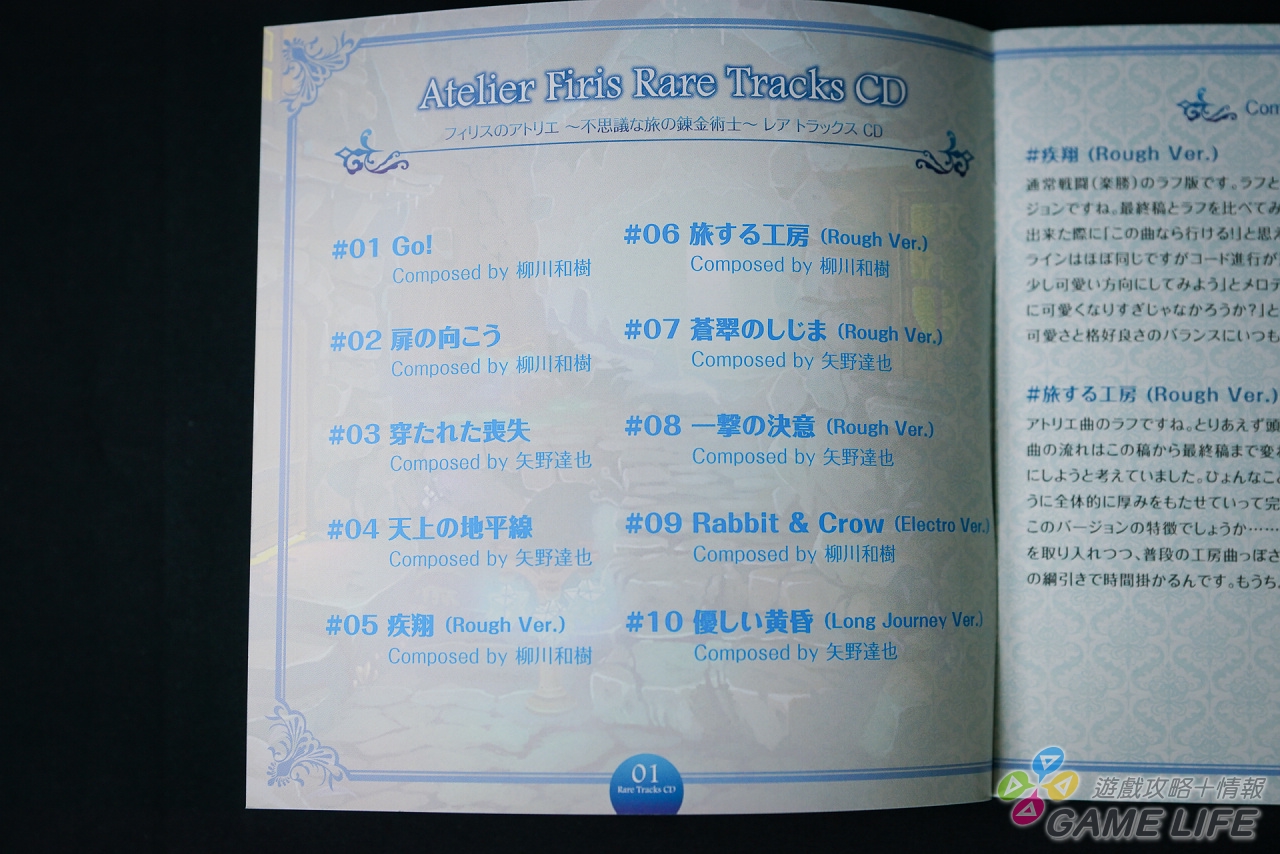 Atelier Firis Rare Tracks CD
フィリスのアトリエ ～不思議な旅の錬金術士～ レア トラックス CD
#01 Go!
Composed by 柳川和樹
#02 扉の向こう
Composed by 柳川和樹
#03 穿たれた喪失
Composed by 矢野達也
#04 天上の地平線
Composed by 矢野達也
#05 疾翔 (Rough Ver.)
Composed by 柳川和樹
#06 旅する工房 (Rough Ver.)
Composed by 柳川和樹
#07 蒼翠のしじま (Rough Ver.)
Composed by 矢野達也
#08 一撃の決意 (Rough Ver.)
Composed by 矢野達也
#09 Rabbit & Crow (Electro Ver.)
Composed by 柳川和樹
#10 優しい黄昏 (Long Journey Ver.)
Composed by 矢野達也
01
Rare Tracks CD
Com
#疾翔 (Rough Ver.)
通常戦闘(楽勝)のラフ版です。ラフと
ジョンですね。最終稿とラフを比べてみ
出来た際に「この曲なら行ける!」と思え
ラインはほぼ同じですがコード進行が
少し可愛い方向にしてみよう」とメロデ
に可愛くなりすぎじゃなかろうか?」と
可愛さと格好良さのバランスにいつも
#旅する工房 (Rough Ver.)
アトリエ曲のラフですね。とりあえず頭
曲の流れはこの稿から最終稿まで変わ
にしようと考えていました。ひょんなこと
うに全体的に厚みをもたせていって完
このバージョンの特徴でしょうか……
を取り入れつつ、普段の工房曲っぽさ
の綱引きで時間掛かるんです。もうち
遊戲攻略＋情報
GAME LIFE